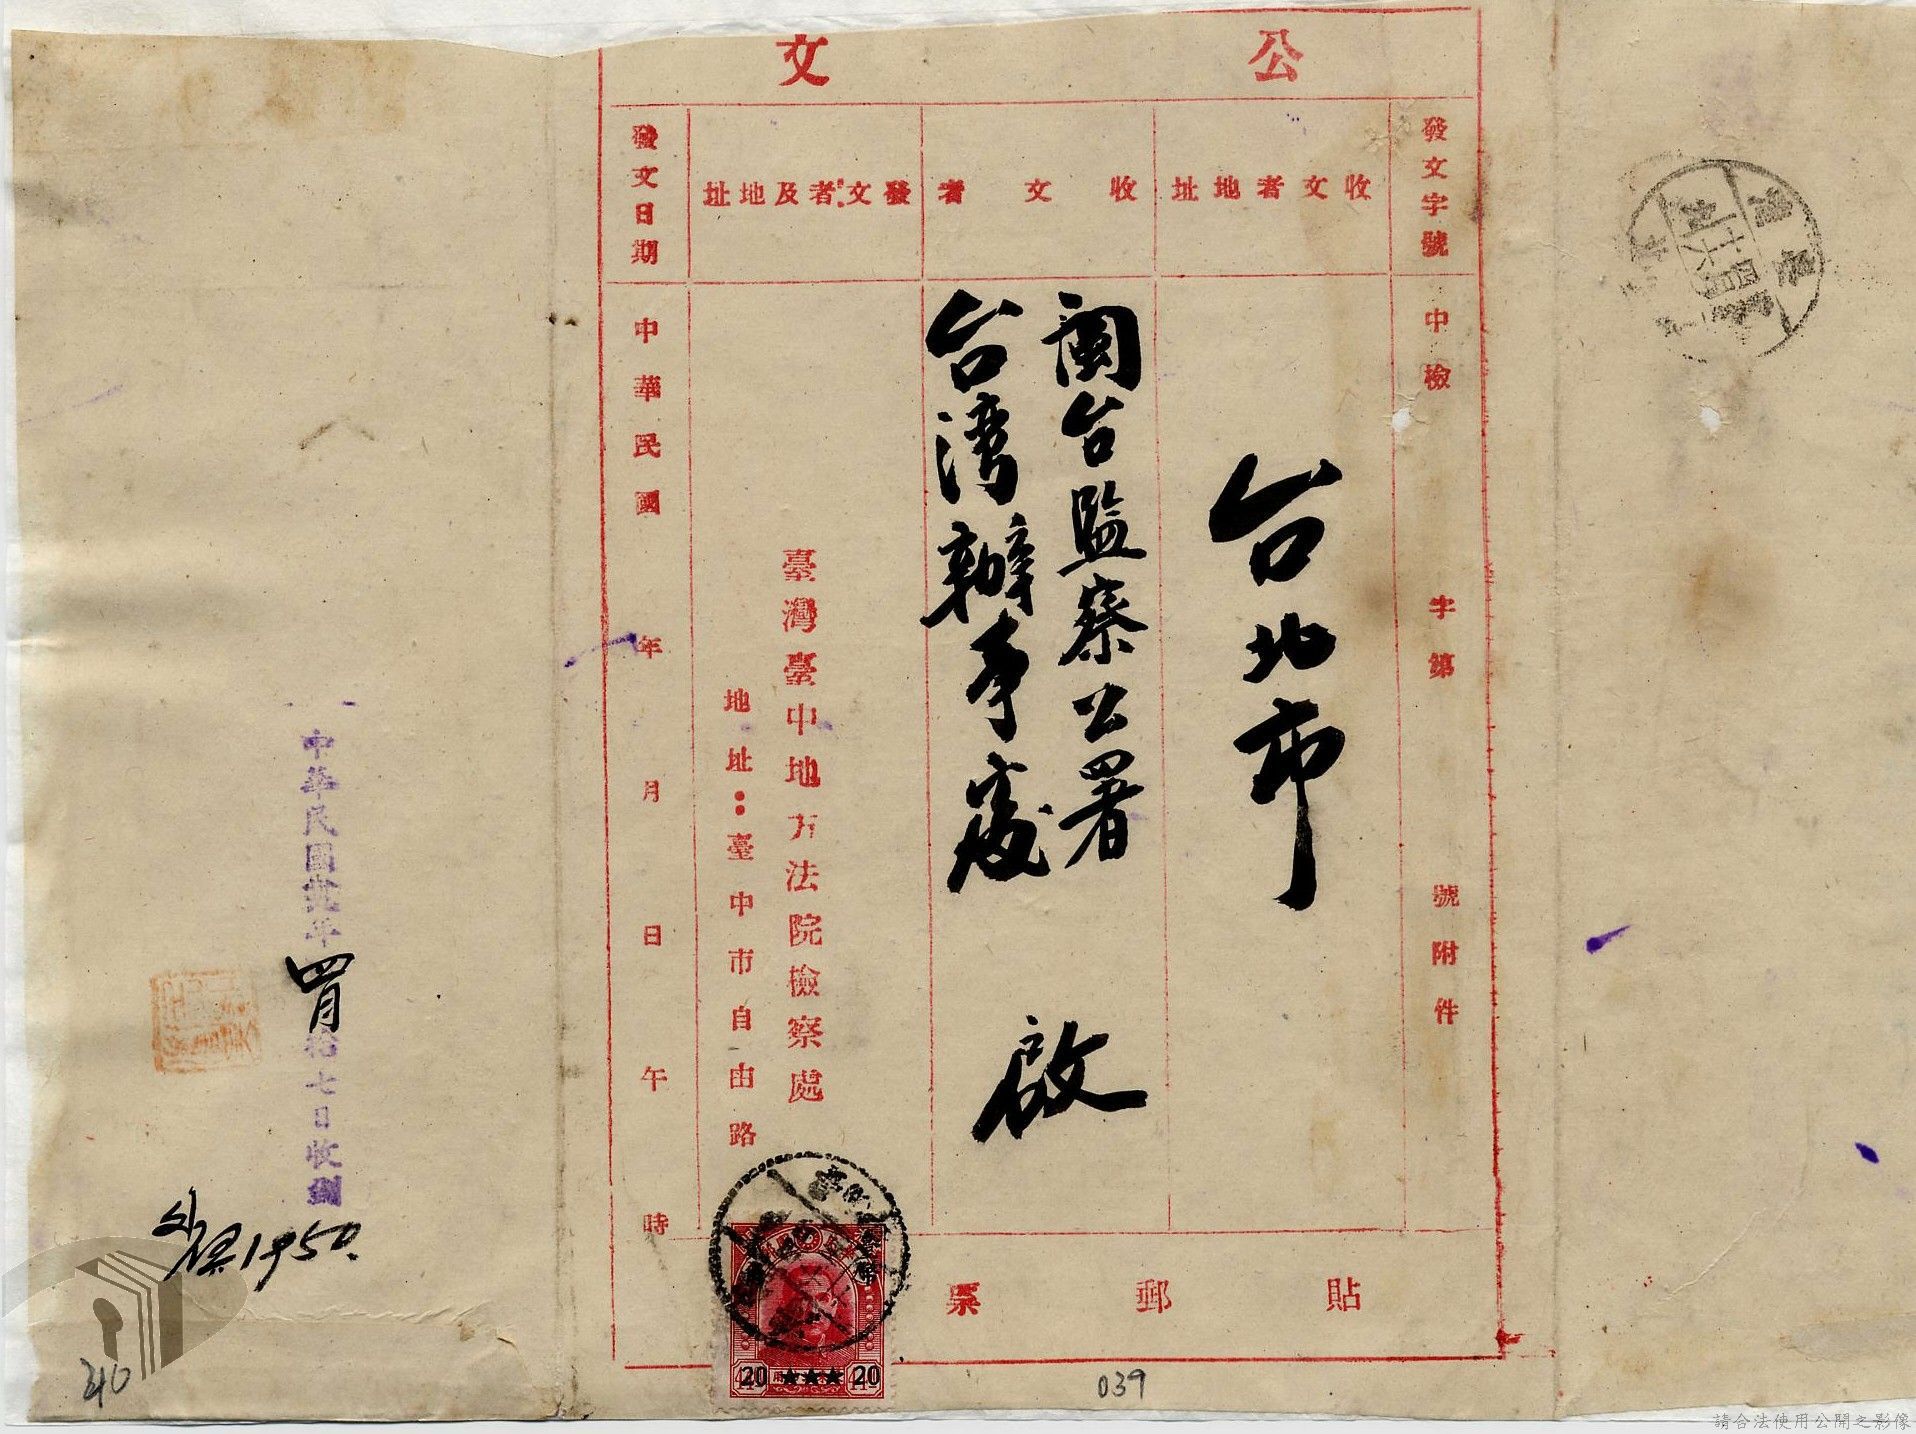 公文
發文字號
中檢 字第 號附件
收文者地址
台北市
收文者
閩台監察公署
台湾辦事处
啟
發文者及地址
臺灣臺中地方法院檢察處
地址:臺中市自由路
發文日期
中華民國 年 月 日 午 時
貼郵票
20 ★★★ 20
中華民國 年四月拾七日收到
1950.
039
340
請合法使用公開之影像